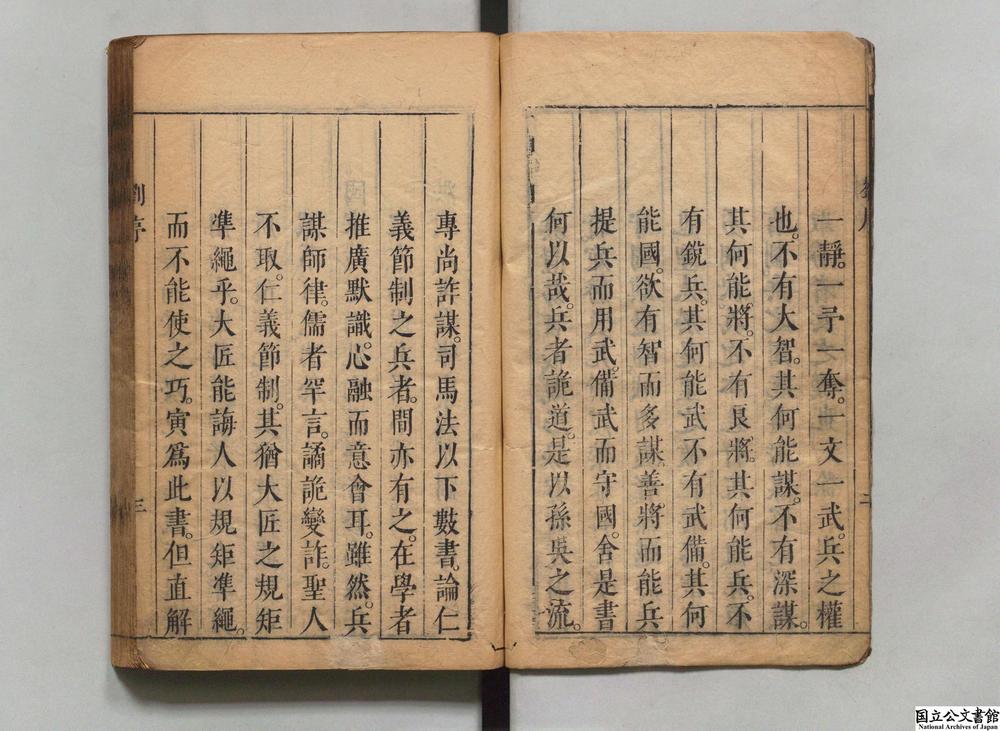 一靜。一予一奪。一文一武。兵之權
也。不有大智。其何能謀。不有深謀。
其何能將。不有良將。其何能兵。不
有銳兵。其何能武。不有武備。其何
能國。欲有智而多謀。善將而能兵
提兵而用武。備武而守國。舍是書
何以哉。兵者詭道。是以孫吳之流。
二
專尚詐謀。司馬法以下數書。論仁
義節制之兵者。間亦有之。在學者
推廣默識。心融而意會耳。雖然。兵
謀師律。儒者罕言。譎詭變詐。聖人
不取。仁義節制。其猶大匠之規矩
準繩乎。大匠能誨人以規矩準繩。
而不能使之巧。寅爲此書。但直解
三
国立公文書館
National Archives of Japan